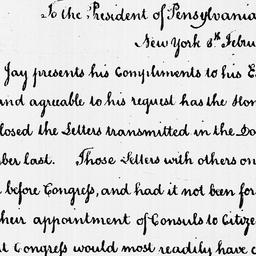 To the President of Pensylvania
New York 8th Febru
Jay presents his Compliments to his E
and agreeable to his request has the Hon
closed the Letters transmitted in the Do
ber last. Those Letters with others on
before Congress, and had it not been for
their appointment of Consuls to Citize
t Congress would most readily have c